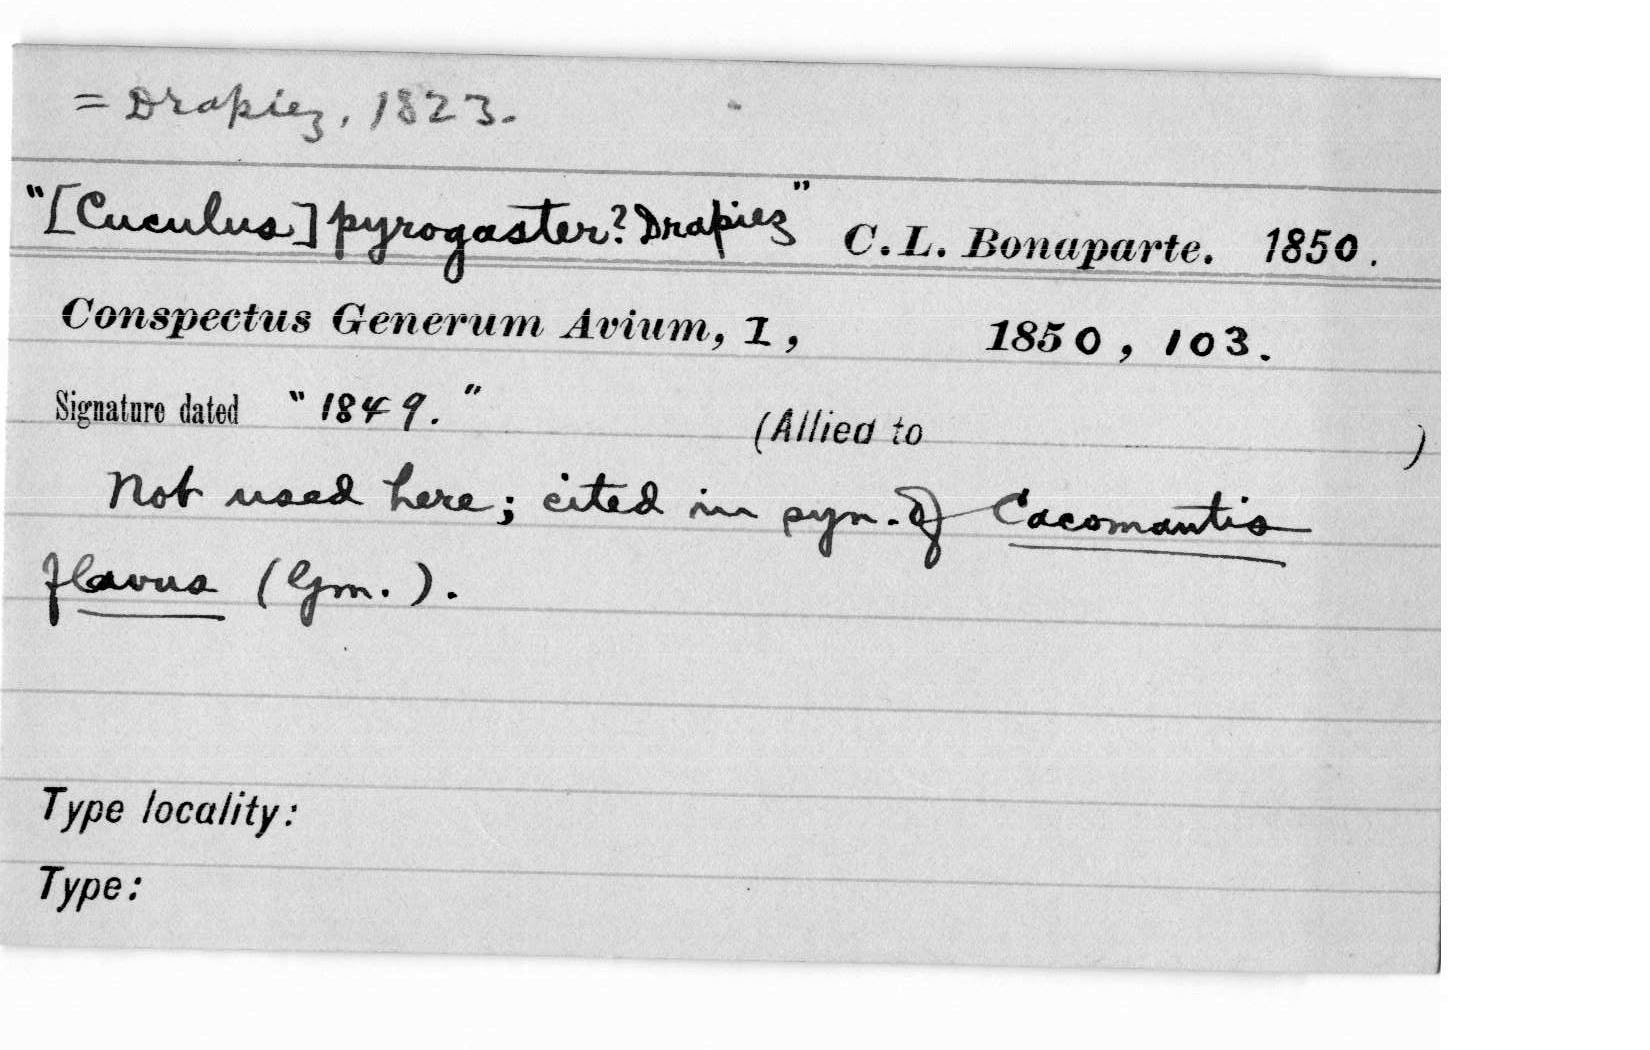 = Drapiez, 1823.
"[Cuculus] pyrogaster? Drapiez" C. L. Bonaparte. 1850.
Conspectus Generum Avium, I, 1850, 103.
Signature dated "1849." (Allied to )
Not used here; cited in syn. of Cacomantis
flavus (Gm.).
Type locality:
Type: